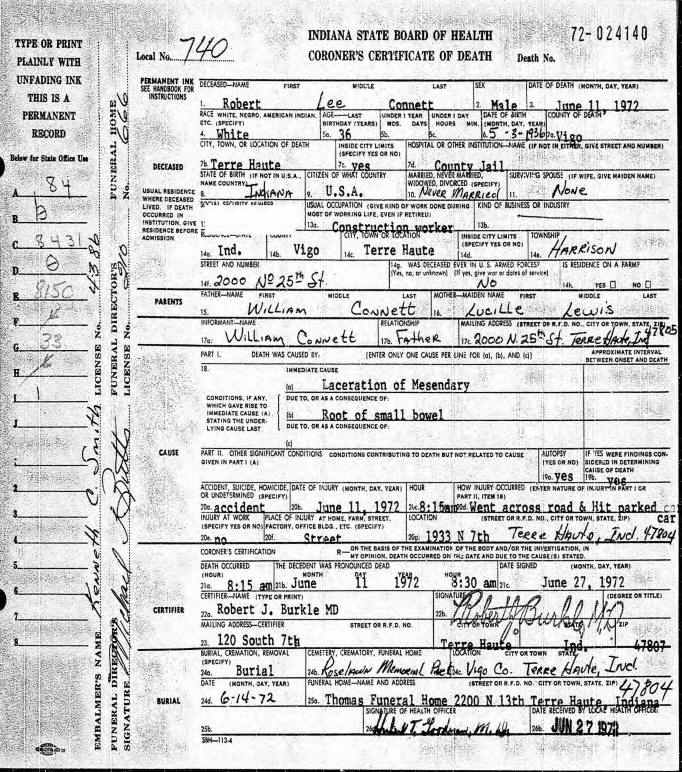 INDIANA STATE BOARD OF HEALTH
CORONER'S CERTIFICATE OF DEATH
72-024140
Local No. 740
Death No.
TYPE OR PRINT
PLAINLY WITH
UNFADING INK
THIS IS A
PERMANENT
RECORD
Below for State Office Use
A 84
B 0
C 8431
D 0
E 8150
F
G 33
H
I 1
J
1
2
3
4
5
6
7
8
EMBALMER'S NAME Kenneth C. Smith LICENSE No. 4386
FUNERAL DIRECTOR'S SIGNATURE
FUNERAL DIRECTOR'S LICENSE No.
FUNERAL HOME No. 666
PERMANENT INK
SEE HANDBOOK FOR
INSTRUCTIONS
DECEASED—NAME FIRST MIDDLE LAST SEX DATE OF DEATH (MONTH, DAY, YEAR)
1. Robert Lee Connett 2. Male 3. June 11, 1972
RACE WHITE, NEGRO, AMERICAN INDIAN, ETC. (SPECIFY) AGE—LAST BIRTHDAY (YEARS) UNDER 1 YEAR MOS. DAYS UNDER 1 DAY HOURS MIN. DATE OF BIRTH (MONTH, DAY, YEAR) COUNTY OF DEATH
4. White 5a. 36 5b. 5c. 6. 5-3-1936 7a. Vigo
CITY, TOWN, OR LOCATION OF DEATH INSIDE CITY LIMITS (SPECIFY YES OR NO) HOSPITAL OR OTHER INSTITUTION—NAME (IF NOT IN EITHER, GIVE STREET AND NUMBER)
DECEASED
7b. Terre Haute 7c. yes 7d. County Jail
USUAL RESIDENCE
WHERE DECEASED
LIVED. IF DEATH
OCCURRED IN
INSTITUTION, GIVE
RESIDENCE BEFORE
ADMISSION.
STATE OF BIRTH (IF NOT IN U.S.A., NAME COUNTRY) CITIZEN OF WHAT COUNTRY MARRIED, NEVER MARRIED, WIDOWED, DIVORCED (SPECIFY) SURVIVING SPOUSE (IF WIFE, GIVE MAIDEN NAME)
8. INDIANA 9. U.S.A. 10. NEVER MARRIED 11. NONE
SOCIAL SECURITY NUMBER USUAL OCCUPATION (GIVE KIND OF WORK DONE DURING MOST OF WORKING LIFE, EVEN IF RETIRED) KIND OF BUSINESS OR INDUSTRY
13a. Construction worker 13b.
RESIDENCE—STATE COUNTY CITY, TOWN OR LOCATION INSIDE CITY LIMITS (SPECIFY YES OR NO) TOWNSHIP
14a. Ind. 14b. Vigo 14c. Terre Haute 14d. 14e. HARRISON
STREET AND NUMBER 14g. WAS DECEASED EVER IN U.S. ARMED FORCES? (Yes, no, or unknown) (If yes, give war or dates of service) IS RESIDENCE ON A FARM?
14f. 2000 No 25th St. NO 14h. YES NO
PARENTS
FATHER—NAME FIRST MIDDLE LAST MOTHER—MAIDEN NAME FIRST MIDDLE LAST
15. WILLIAM CONNETT 16. LUCILLE LEWIS
INFORMANT—NAME RELATIONSHIP MAILING ADDRESS (STREET OR R.F.D. NO., CITY OR TOWN, STATE, ZIP)
17a. WILLIAM CONNETT 17b. FATHER 17c. 2000 N. 25th St. TERRE HAUTE, Ind 47805
PART I. DEATH WAS CAUSED BY: (ENTER ONLY ONE CAUSE PER LINE FOR (a), (b), AND (c)) APPROXIMATE INTERVAL BETWEEN ONSET AND DEATH
18. IMMEDIATE CAUSE
(a) Laceration of Mesendary
CONDITIONS, IF ANY,
WHICH GAVE RISE TO
IMMEDIATE CAUSE (A),
STATING THE UNDER-
LYING CAUSE LAST
DUE TO, OR AS A CONSEQUENCE OF:
(b) Root of small bowel
DUE TO, OR AS A CONSEQUENCE OF:
(c)
CAUSE
PART II. OTHER SIGNIFICANT CONDITIONS CONDITIONS CONTRIBUTING TO DEATH BUT NOT RELATED TO CAUSE GIVEN IN PART I (A) AUTOPSY (YES OR NO) IF YES WERE FINDINGS CONSIDERED IN DETERMINING CAUSE OF DEATH
19a. yes 19b. yes
ACCIDENT, SUICIDE, HOMICIDE, OR UNDETERMINED (SPECIFY) DATE OF INJURY (MONTH, DAY, YEAR) HOUR HOW INJURY OCCURRED (ENTER NATURE OF INJURY IN PART I OR PART II, ITEM 18)
20a. accident 20b. June 11, 1972 20c. 8:15am 20d. Went across road & Hit parked car
INJURY AT WORK (SPECIFY YES OR NO) PLACE OF INJURY AT HOME, FARM, STREET, FACTORY, OFFICE BLDG., ETC. (SPECIFY) LOCATION (STREET OR R.F.D. NO., CITY OR TOWN, STATE, ZIP) car
20e. no 20f. Street 20g. 1933 N 7th Terre Haute, Ind. 47804
CORONER'S CERTIFICATION R—ON THE BASIS OF THE EXAMINATION OF THE BODY AND/OR THE INVESTIGATION, IN MY OPINION, DEATH OCCURRED ON THE DATE AND DUE TO THE CAUSE(S) STATED.
DEATH OCCURRED (HOUR) THE DECEDENT WAS PRONOUNCED DEAD MONTH DAY YEAR HOUR DATE SIGNED (MONTH, DAY, YEAR)
21a. 8:15 am 21b. June 11 1972 8:30 am 21c. June 27, 1972
CERTIFIER
CERTIFIER—NAME (TYPE OR PRINT) SIGNATURE (DEGREE OR TITLE)
22a. Robert J. Burkle MD 22b. Robert J. Burkle M.D.
MAILING ADDRESS—CERTIFIER STREET OR R.F.D. NO. CITY OR TOWN STATE ZIP
23. 120 South 7th Terre Haute Ind. 47807
BURIAL, CREMATION, REMOVAL (SPECIFY) CEMETERY, CREMATORY, FUNERAL HOME LOCATION CITY OR TOWN STATE
24a. Burial 24b. Roselawn Memorial Park 24c. Vigo Co. Terre Haute, Ind.
BURIAL
DATE (MONTH, DAY, YEAR) FUNERAL HOME—NAME AND ADDRESS (STREET OR R.F.D. NO., CITY OR TOWN, STATE, ZIP) 47804
24d. 6-14-72 25a. Thomas Funeral Home 2200 N 13th Terre Haute, Indiana
SIGNATURE OF HEALTH OFFICER DATE RECEIVED BY LOCAL HEALTH OFFICER
25b. 26b. JUN 27 1972
SBH—113-4